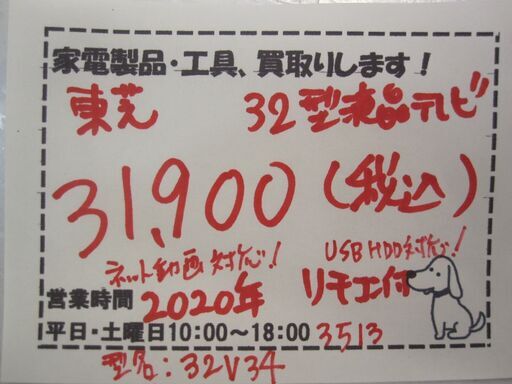 家電製品・工具、買取りします！
東芝 32型液晶テレビ
31,900（税込）
ネット動画対応！ USB HDD対応！
営業時間 2020年 リモコン付
平日・土曜日10:00～18:00 3513
型名：32V34